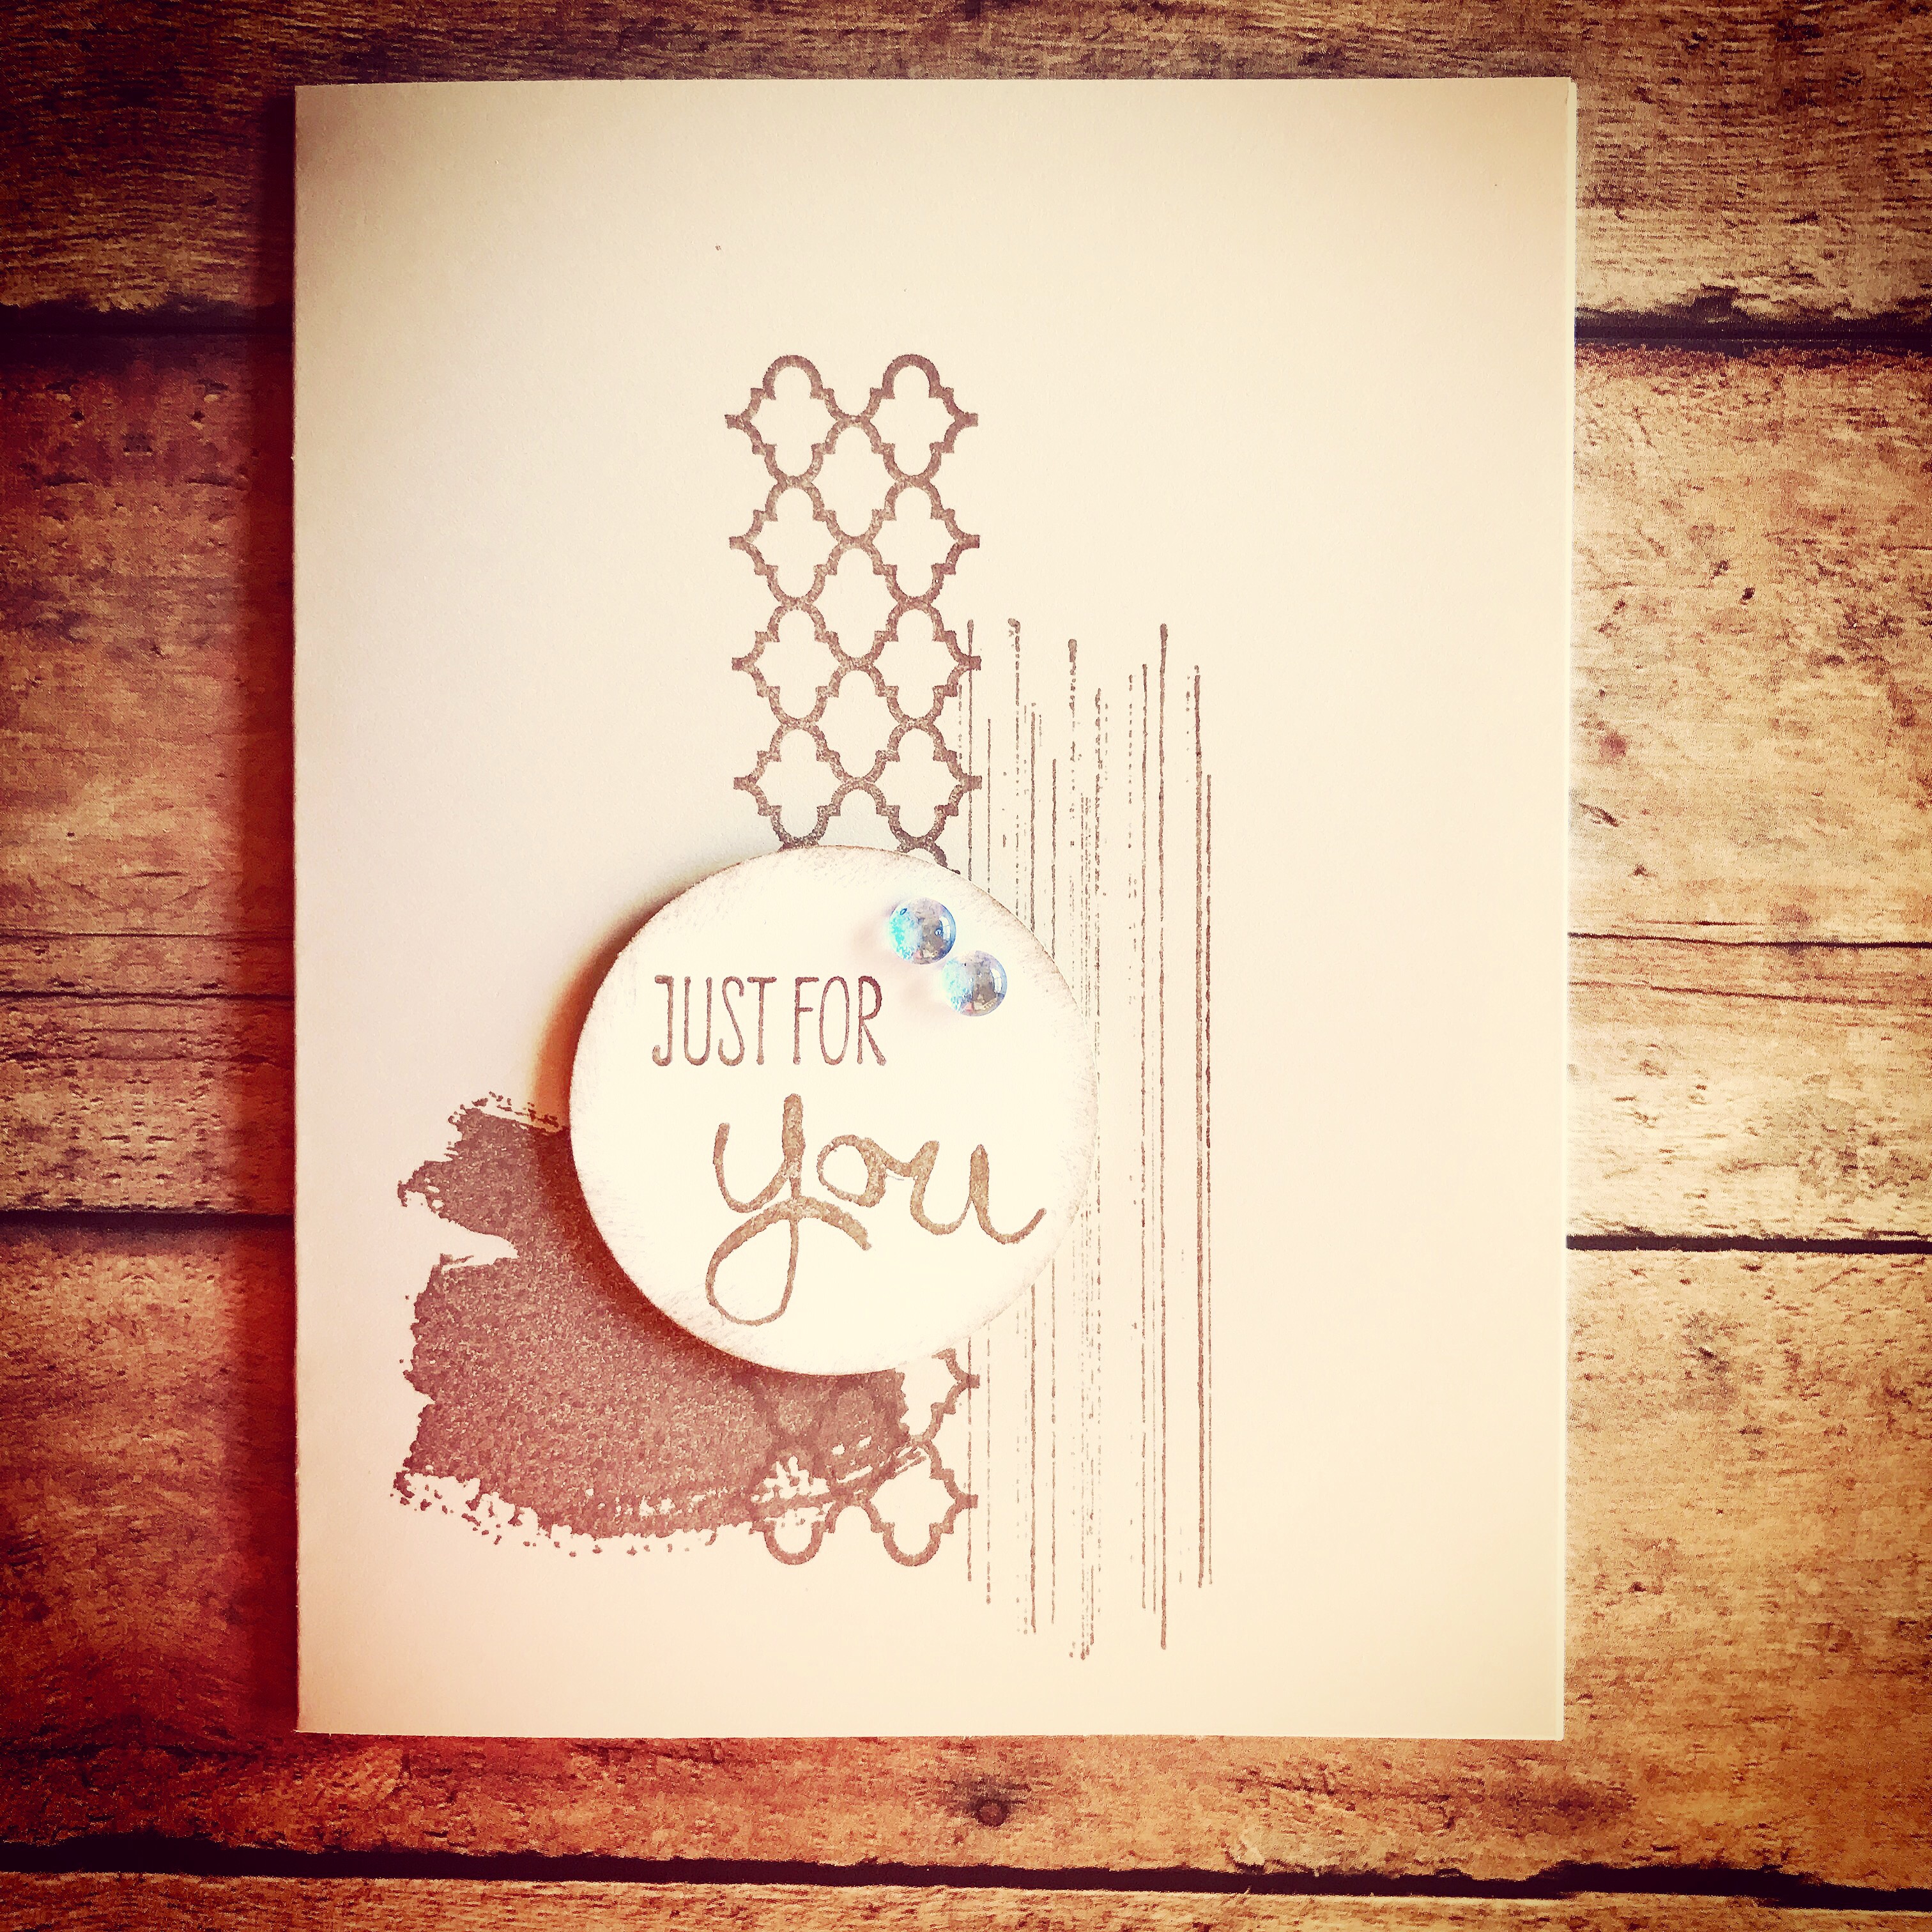 JUST FOR
you